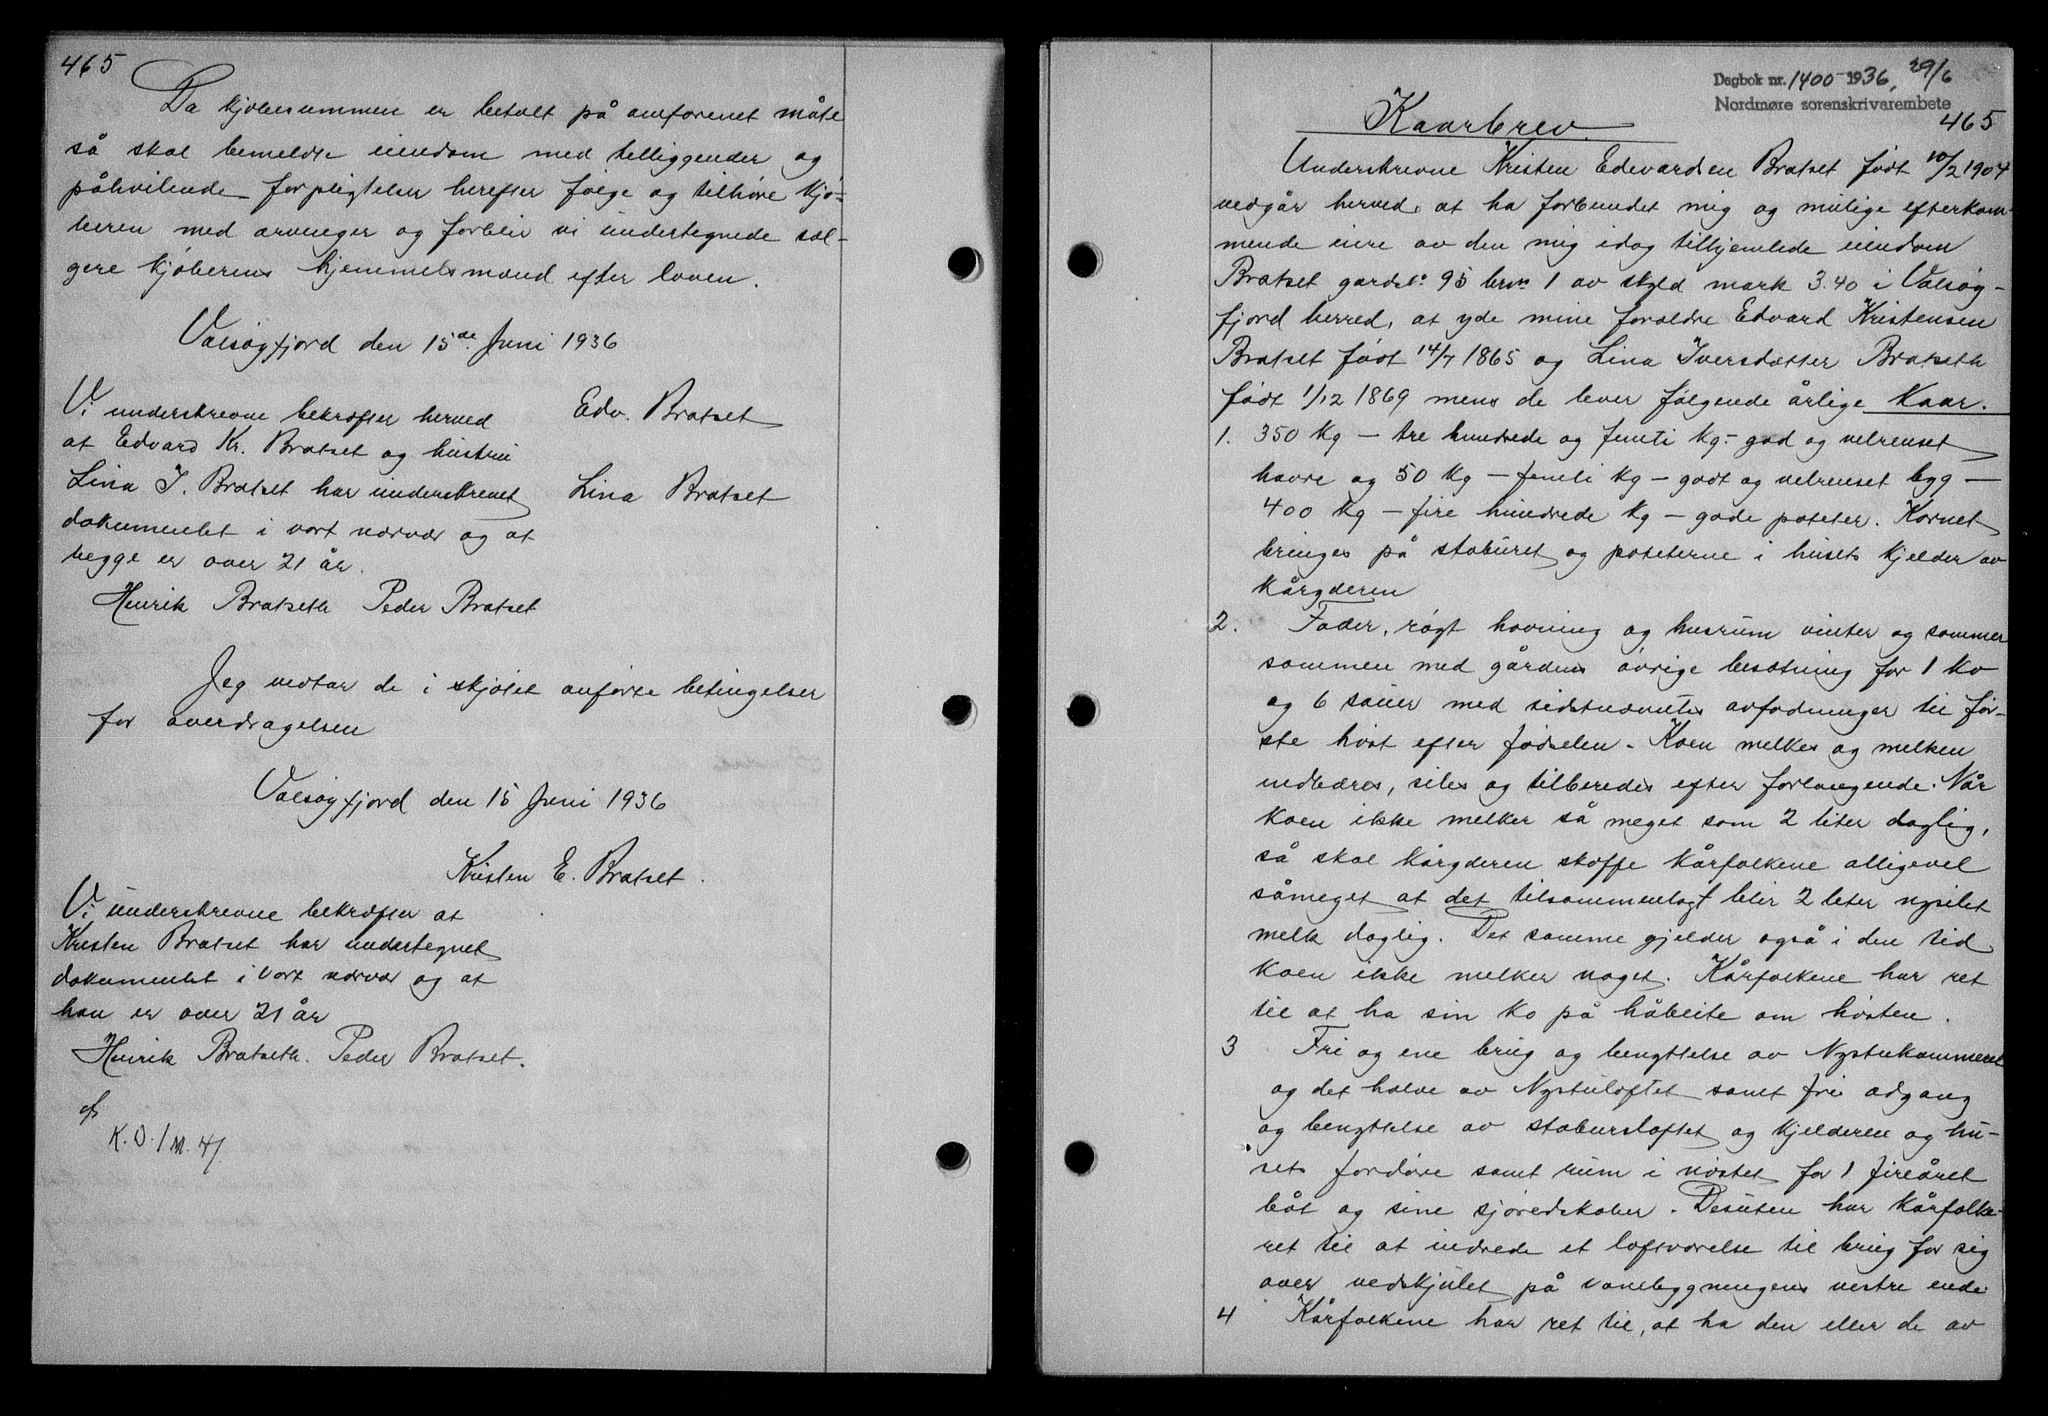 465
Da kjøbesummen er betalt på omforenet måte
så skal bemeldte eiendom med tilliggender og
påhvilende forpligtelser herefter følge og tilhøre kjø-
beren med arvinger og forblir vi undertegnede sæl-
gere kjøberens hjemmelsmænd efter loven.
Valsøyfjord den 15de Juni 1936
Vi underskrevne bekræfter herved
at Edvard Kr. Bratset og hustru
Lina I. Bratset har underskrevet
dokumentet i vort nærvær og at
begge er over 21 år.
Edv. Bratset
Lina Bratset
Henrik Bratseth Peder Bratset
Jeg vedtar de i skjøtet anførte betingelser
for overdragelsen
Valsøyfjord den 15 Juni 1936
Kristen E. Bratset.
Vi underskrevne bekræfter at
Kristen Bratset har undertegnet
dokumentet i vort nærvær og at
han er over 21 år
Henrik Bratseth. Peder Bratset.
K.O.
Dagbok nr. 1400 1936, 29/6
Nordmøre sorenskrivarembete
465
Kaarbrev.
Underskrevne Kristen Edvardsen Bratset født 10/2 1904
vedgår herved at ha forbundet mig og mulige efterkom-
mende eiere av den mig idag tilhjemlede eiendom
Bratset gardsn. 95 brn 1 av skyld mark 3.40 i Valsøy-
fjord herred, at yde mine forældre Edvard Kristensen
Bratset født 14/7 1865 og Lina Iversdatter Bratseth
født 1/12 1869 mens de lever følgende årlige Kaar.
1. 350 kg – tre hundrede og femti kg – god og velrenset
havre og 50 kg – femti kg – godt og velrenset bygg –
400 kg – fire hundrede kg – gode poteter. Kornet
bringes på staburet og poteterne i husets kjelder av
kårgderen
2. Foder, røgt havning og husrum vinter og sommer
sammen med gårdens øvrige besætning for 1 ko
og 6 sauer med sidstnævntes avfødninger til før-
ste høst efter fødselen. Koen melkes og melken
indbæres, siles og tilberedes efter forlangende. Når
koen ikke melker så meget som 2 liter daglig,
så skal kårgderen skaffe kårfolkene alligevel
såmeget at det tilsammenlagt blir 2 liter nysilet
melk daglig. Det samme gjelder også i den tid
koen ikke melker noget. Kårfolkene har ret
til at ha sin ko på håbeite om høsten.
3 Fri og ene brug og benyttelse av Nystukammeret
og det halve av Nystuloftet samt fri adgang
og benyttelse av stabursloftet og kjelderen og hu-
sets fordøre samt rum i nøstet for 1 fireåret
båt og sine sjøredskaber. Desuten har kårfolke-
ret til at indrede et loftværelse til brug for sig
over vedskjulet på vånebygningens vestre ende
4 Kårfolkene har ret til, at ha den eller de av